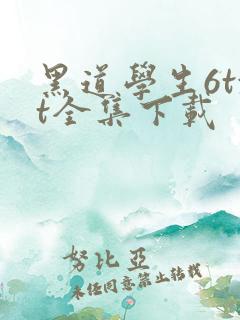 黑道學生6tx
t全集下載
努比亞
未經同意禁止轉載